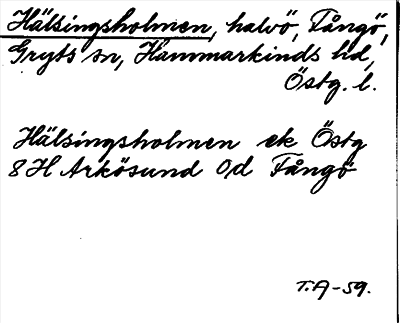 Hälsingsholmen, halvö, Fångö,
Gryts sn, Hammarkinds hd,
Östg. l.
Hälsingsholmen ek Östg
8H Arkösund 0d Fångö
T.A-59.